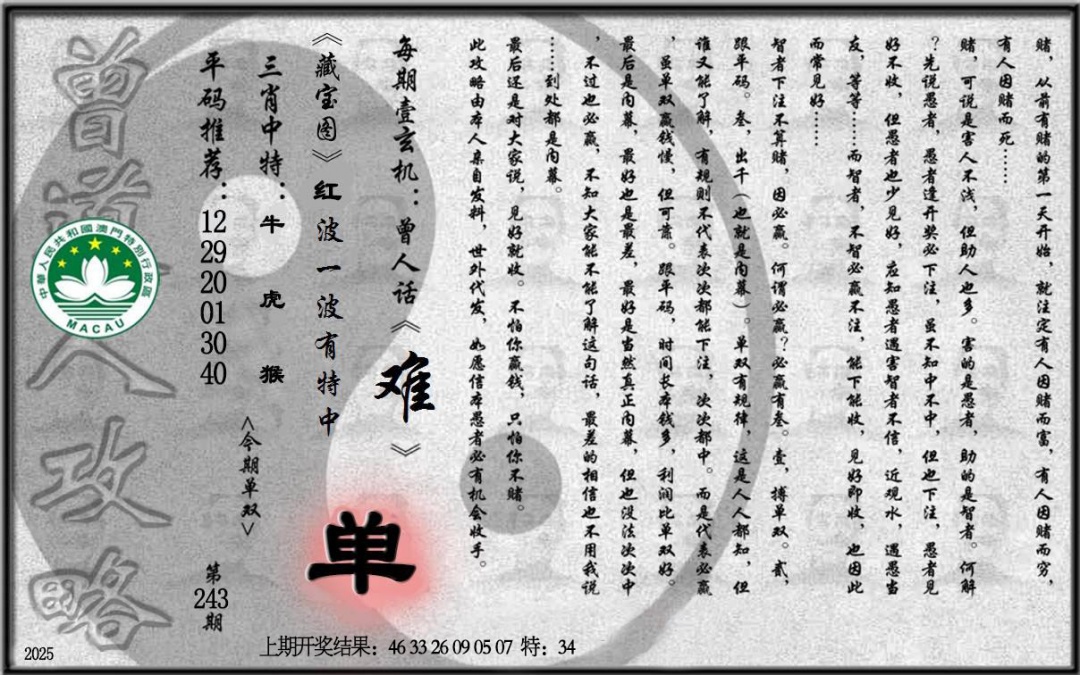 赌，从前有赌的第一天开始，就注定有人因赌而富，有人因赌而穷，
有人因赌而死……
赌，可说是害人不浅，但助人也多。害的是愚者，助的是智者。何解
？先说愚者，愚者逢开奖必下注，虽不知中不中，但也下注，愚者见
好不收，但愚者也少见好，应知愚者遇害智者不信，近观水，遇愚当
友，等等……而智者，不智必赢不注，能下能收，见好即收，也因此
而常见好……
智者下注不算赌，因必赢。何谓必赢？必赢有叁。壹，搏单双。贰，
跟单码。叁，出千（也就是内幕）。单双有规律，这是人人都知，但
谁又能了解，有规则不代表次次都能下注，次次都中。而是代表必赢
，虽单双赢钱慢，但可靠。跟单码，时间长本钱多，利润比单双好。
最后是内幕，最好也是最差，最好是当然真正内幕，但也没法次次中
，不过也必赢，不知大家能不能了解这句话，最差的相信也不用我说
……到处都是内幕。
最后还是对大家说，见好就收。不怕你赢钱，只怕你不赌。
此攻略由本人亲自发料，世外代发，如愿信本愚者必有机会收手。
每期壹玄机：曾人话《难》
《藏宝图》红波一波有特中
单
三肖中特：牛虎猴
<今期单双>
平码推荐：12 29 20 01 30 40
第243期
曾道人攻略
中華人民共和國澳門特別行政區
MACAU
2025
上期开奖结果：46 33 26 09 05 07 特：34